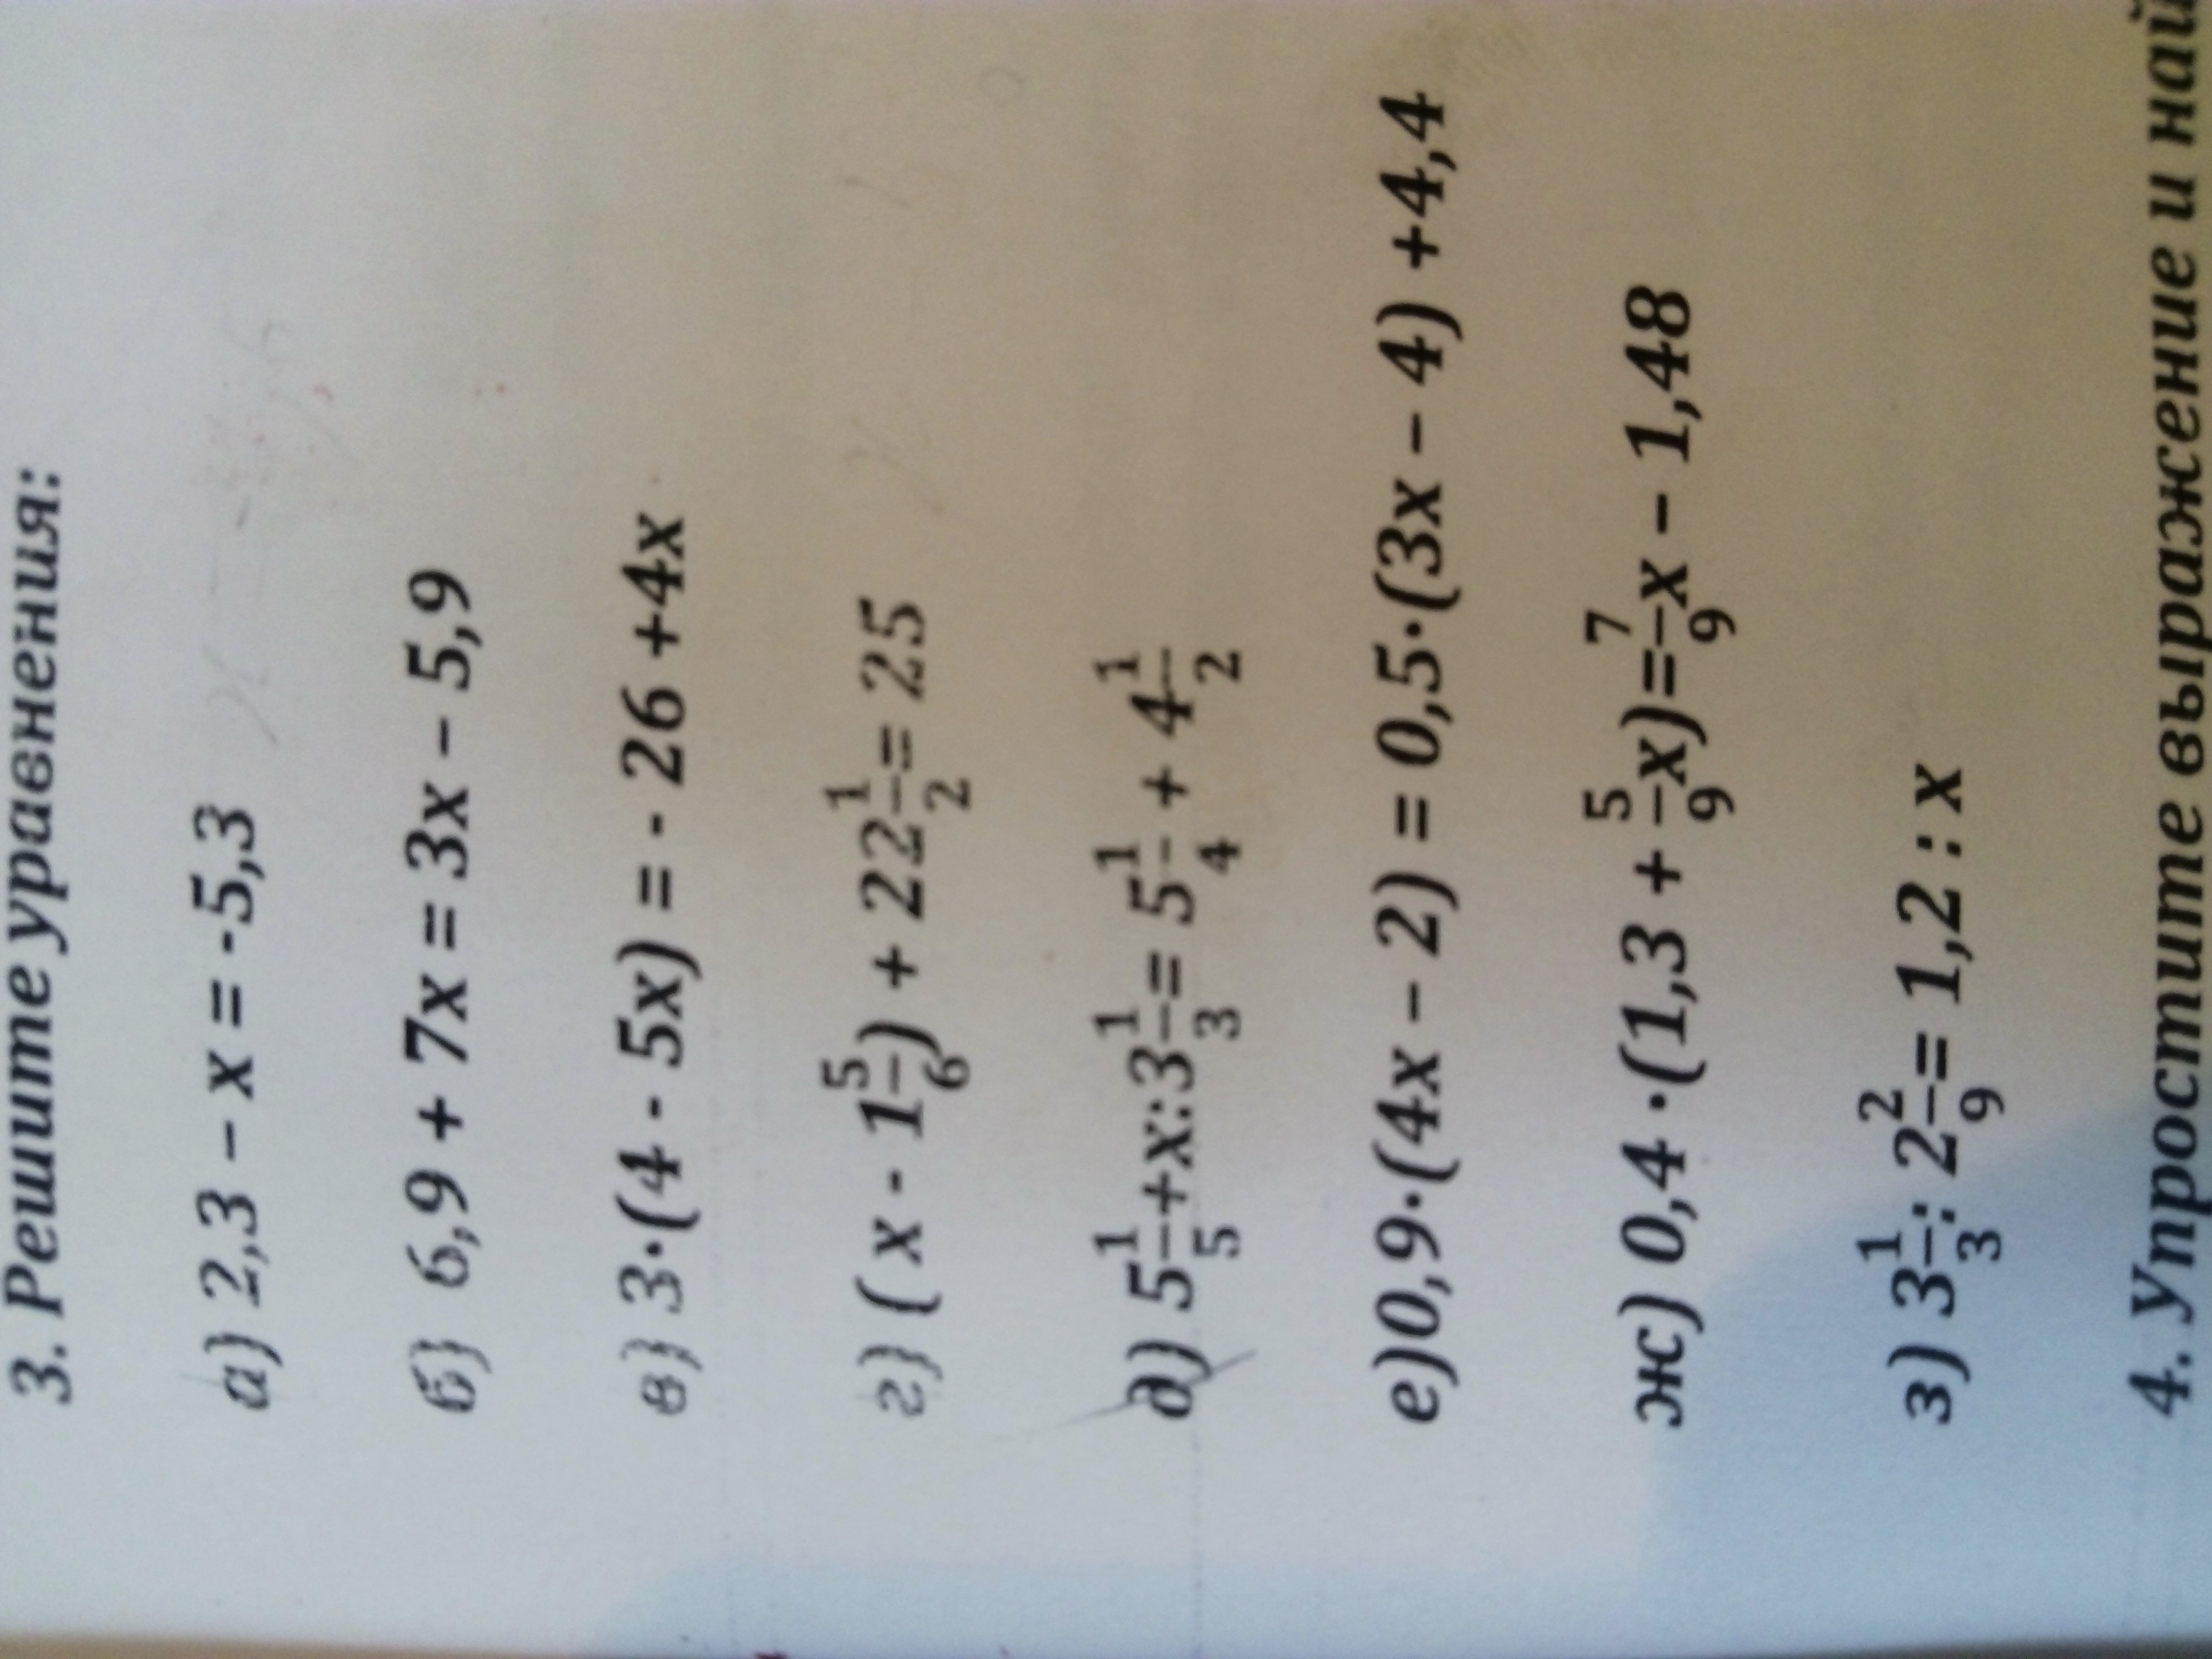 3. Решите уравнения:
а) 2,3 – x = -5,3
б) 6,9 + 7x = 3x – 5,9
в) 3·(4 - 5x) = - 26 +4x
г) ( x - 1 5/6) + 22 1/2 = 25
д) 5 1/5 +x:3 1/3 = 5 1/4 + 4 1/2
е)0,9·(4x – 2) = 0,5·(3x – 4) +4,4
ж) 0,4 ·(1,3 + 5/9 x)= 7/9 x – 1,48
з) 3 1/3 : 2 2/9 = 1,2 : x
4. Упростите выражение и най